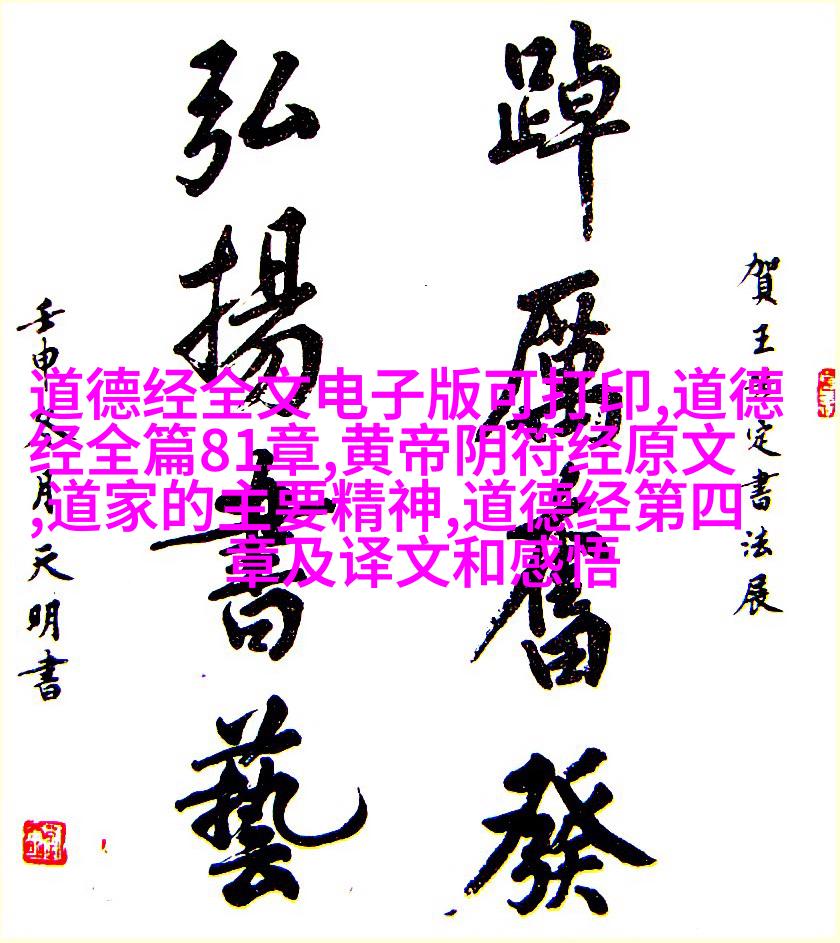 賀王定書法展
踔厲奮發
弘揚書藝
壬申月天明書
道德经全文电子版可打印,道德
经全篇81章,黄帝阴符经原文
,道家的主要精神,道德经第四
章及译文和感悟